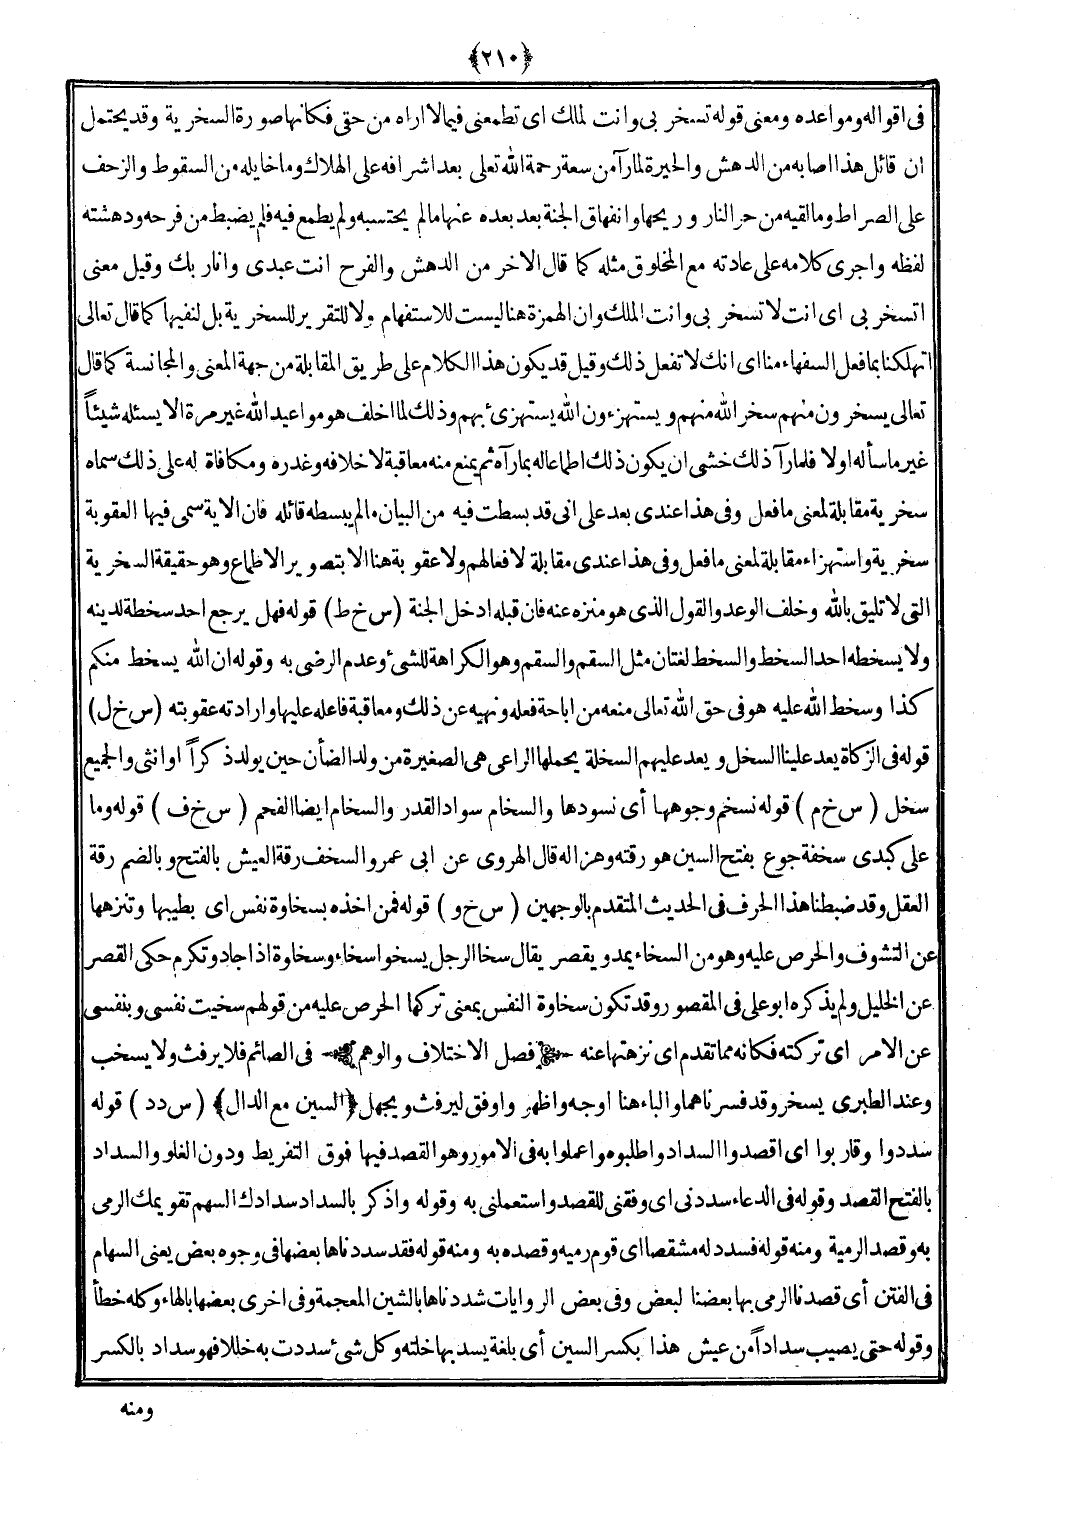 ﴿٢١٠﴾
فى اقواله ومواعده ومعنى قوله تسخر بى وانت الملك اى تطمعنى فيما لا اراه من حقى فكانها صورة السخرية وقد يحتمل
ان قائل هذا اصابه من الدهش والحيرة لما رآ من سعة رحمة الله تعلى بعد اشرافه على الهلاك وما خايله من السقوط والزحف
على الصراط وما لقيه من حر النار وريحها وانفهاق الجنة بعد بعده عنها ما لم يحتسبه ولم يطمع فيه فلم يضبط من فرحه ودهشته
لفظه واجرى كلامه على عادته مع المخلوق مثله كما قال الاخر من الدهش والفرح انت عبدى وانا ربك وقيل معنى
اتسخر بى اى انت لا تسخر بى وانت الملك وان الهمزة هنا ليست للاستفهام ولا للتقرير للسخرية بل لنفيها كما قال تعالى
اتهلكنا بما فعل السفهاء منا اى انك لا تفعل ذلك وقيل قد يكون هذا الكلام على طريق المقابلة من جهة المعنى والمجانسة كما قال
تعالى يسخرون منهم سخر الله منهم ويستهزءون الله يستهزئ بهم وذلك لما اخلف هو مواعيد الله غير مرة الا يسئله شيئاً
غير ما سأله اولا فلما رآ ذلك خشى ان يكون ذلك اطماعا له بما رآه ثم يمنع منه معاقبة لاخلافه وغدره ومكافاة له على ذلك سماه
سخرية مقابلة لمعنى ما فعل وفى هذا عندى بعد على انى قد بسطت فيه من البيان ما لم يبسطه قائله فان الاية سمى فيها العقوبة
سخرية واستهزاء مقابلة لمعنى ما فعل وفى هذا عندى مقابلة لافعالهم ولا عقوبة هنا الا بتصوير الاطماع وهو حقيقة السخرية
التى لا تليق بالله وخلف الوعد والقول الذى هو منزه عنه فان قبله ادخل الجنة (س خ ط) قوله فهل يرجع احد سخطة لدينه
ولا يسخطه احد السخط والسخط لغتان مثل السقم والسقم وهو الكراهة للشىء وعدم الرضى به وقوله ان الله يسخط منكم
كذا وسخط الله عليه هو فى حق الله تعالى منعه من اباحة فعله ونهيه عن ذلك ومعاقبة فاعله عليها وارادته عقوبته (س خ ل)
قوله فى الزكاة يعد علينا السخل ويعد عليهم السخلة يحملها الراعى هى الصغيرة من ولد الضأن حين يولد ذكراً او انثى والجميع
سخل ( س خ م ) قوله نسخم وجوههما أى نسودها والسخام سواد القدر والسخام ايضا الفحم ( س خ ف ) قوله وما
على كبدى سخفة جوع بفتح السين هو رقته وهزاله قال الهروى عن ابى عمرو السخف رقة العيش بالفتح وبالضم رقة
العقل وقد ضبطنا هذا الحرف فى الحديث المتقدم بالوجهين ( س خ و ) قوله فمن اخذه بسخاوة نفس اى بطيبها وتنزهها
عن التشوف والحرص عليه وهو من السخاء يمد ويقصر يقال سخا الرجل يسخو اسخاء وسخاوة اذا جاد وتكرم حكى القصر
عن الخليل ولم يذكره ابو على فى المقصور وقد تكون سخاوة النفس بمعنى تركها الحرص عليه من قولهم سخيت نفسى وبنفسى
عن الامر اى تركته فكانه مما تقدم اى نزهتها عنه فصل الاختلاف والوهم فى الصائم فلا يرفث ولا يسخب
وعند الطبرى يسخر وقد فسرناهما والباء هنا اوجه واظهر واوفق ليرفث ويجهل ﴿السين مع الدال﴾ (س د د ) قوله
سددوا وقاربوا اى اقصدوا السداد واطلبوه واعملوا به فى الامور وهو القصد فيها فوق التفريط ودون الغلو والسداد
بالفتح القصد وقوله فى الدعاء سددنى اى وفقنى للقصد واستعملنى به وقوله واذكر بالسداد سدادك السهم تقويمك الرمى
به وقصد الرمية ومنه قوله فسدد له مشقصا اى قوم رميه وقصده به ومنه قوله فقد سددناها بعضها فى وجوه بعض يعنى السهام
فى الفتن أى قصدنا الرمى بها بعضنا لبعض وفى بعض الروايات شددناها بالشين المعجمة وفى اخرى بعضها بالهاء وكله خطأ
وقوله حتى يصيب سداداً من عيش هذا بكسر السين أى بلغة يسد بها خلته وكل شىء سددت به خللا فهو سداد بالكسر
ومنه